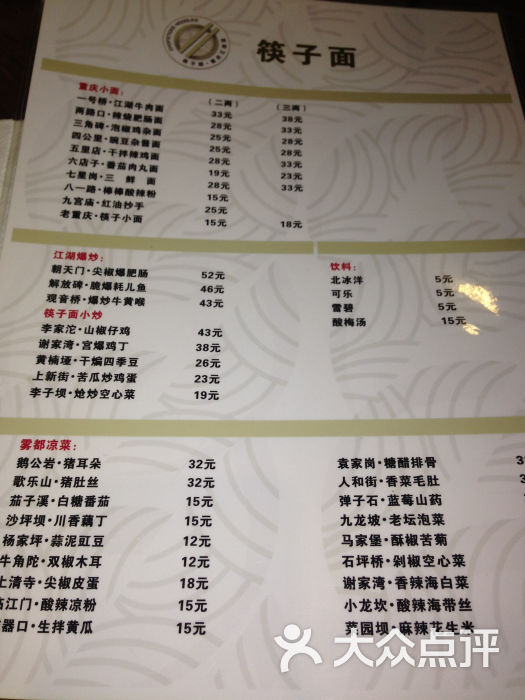 筷子面
重庆小面: (二两) (三两)
一号桥·江湖牛肉面 33元 38元
两路口·辣烧肥肠面 28元 33元
三角碑·泡椒鸡杂面 25元 28元
四公里·豌豆杂酱面 25元 28元
五里店·干拌辣鸡面 28元 33元
六店子·番茄肉丸面 19元 23元
七星岗·三鲜面 28元 33元
八一路·棒棒酸辣粉 15元
九宫庙·红油抄手 25元
老重庆·筷子小面 15元 18元
江湖爆炒:
朝天门·尖椒爆肥肠 52元
解放碑·脆爆耗儿鱼 46元
观音桥·爆炒牛黄喉 43元
筷子面小炒
李家沱·山椒仔鸡 43元
谢家湾·宫爆鸡丁 38元
黄楠垭·干煸四季豆 26元
上新街·苦瓜炒鸡蛋 23元
李子坝·炝炒空心菜 19元
饮料:
北冰洋 5元
可乐 5元
雪碧 5元
酸梅汤 15元
雾都凉菜:
鹅公岩·猪耳朵 32元
歌乐山·猪肚丝 32元
茄子溪·白糖番茄 15元
沙坪坝·川香藕丁 15元
杨家坪·蒜泥豇豆 12元
牛角陀·双椒木耳 12元
上清寺·尖椒皮蛋 18元
临江门·酸辣凉粉 15元
器口·生拌黄瓜 15元
袁家岗·糖醋排骨 32
人和街·香菜毛肚
弹子石·蓝莓山药
九龙坡·老坛泡菜
马家堡·酥椒苦菊
石坪桥·剁椒空心菜
谢家湾·香辣海白菜
小龙坎·酸辣海带丝
菜园坝·麻辣花生米
大众点评